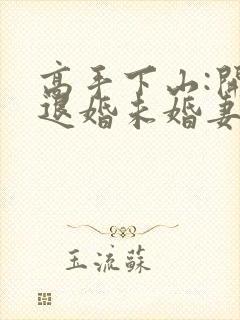 高手下山:開
退婚未婚妻
玉流蘇